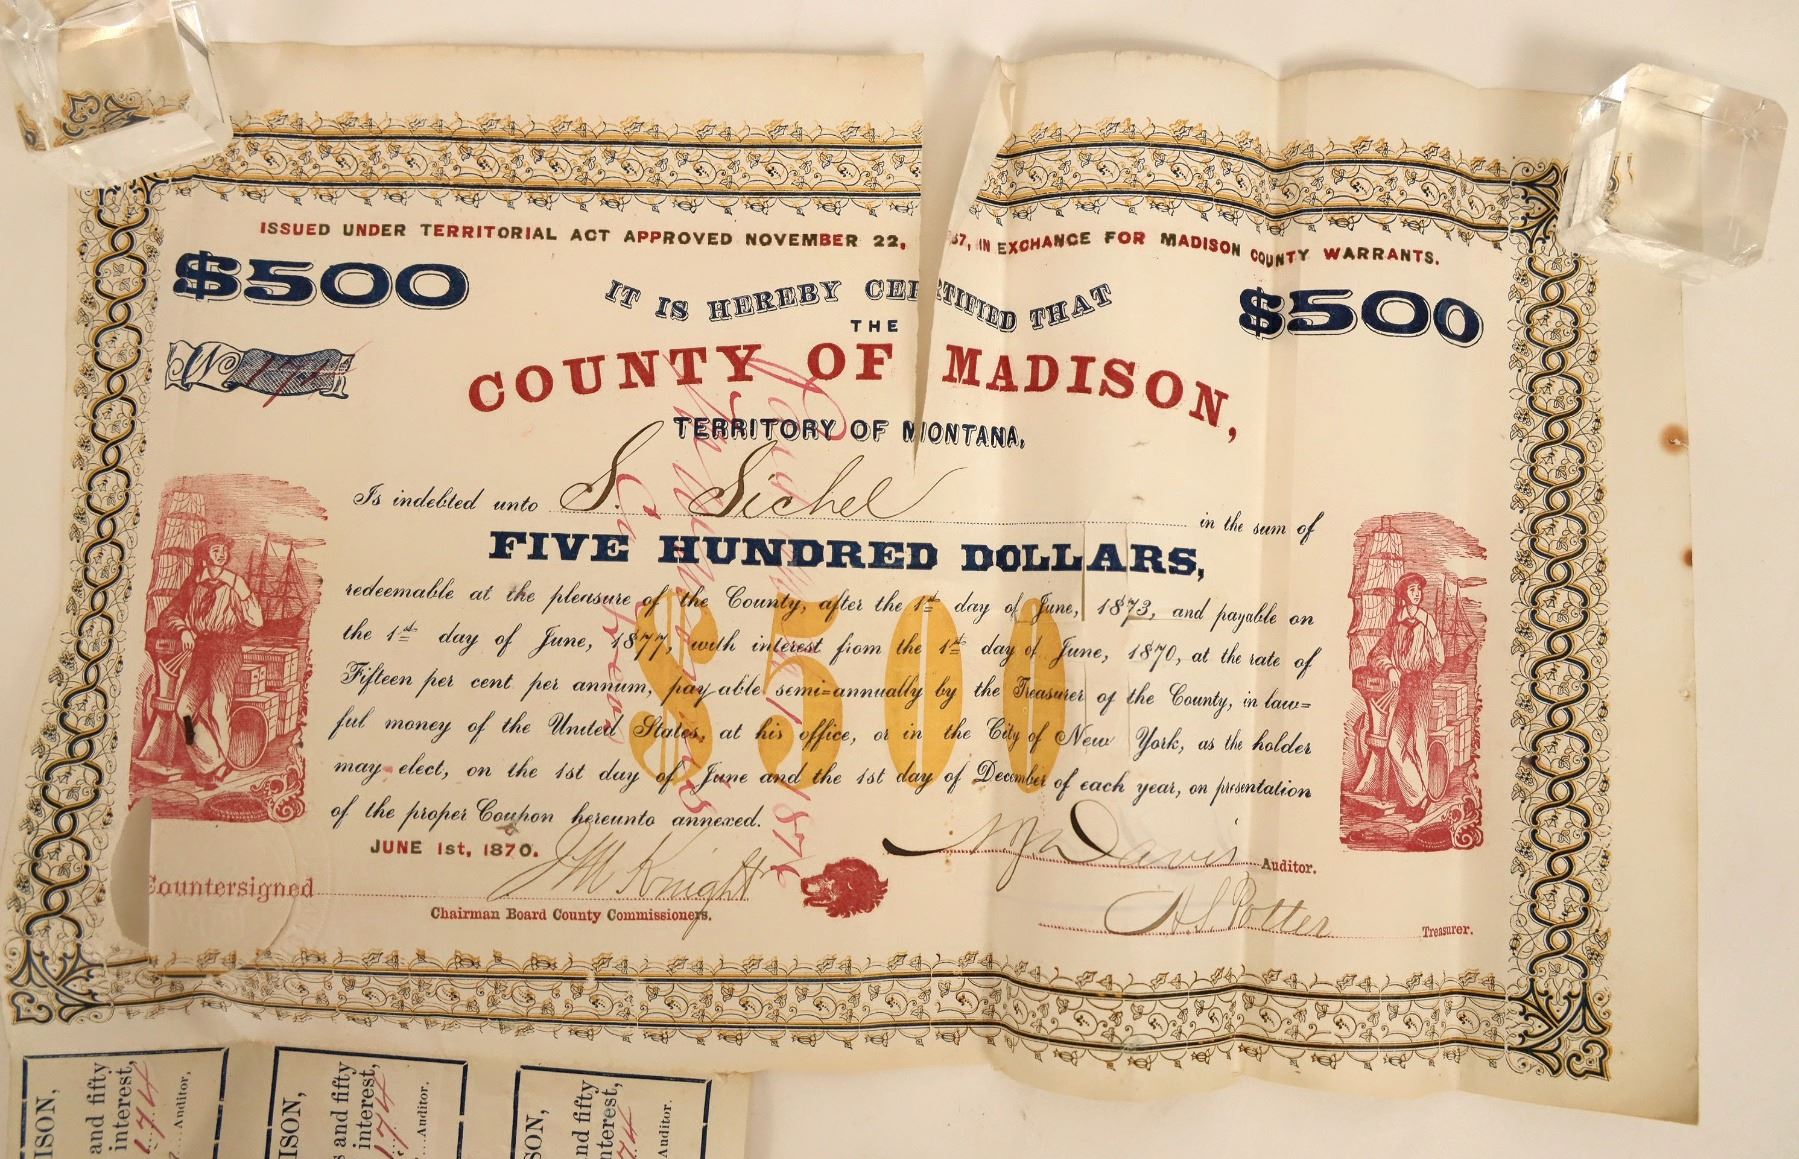 ISSUED UNDER TERRITORIAL ACT APPROVED NOVEMBER 22, 67, IN EXCHANGE FOR MADISON COUNTY WARRANTS.
$500 $500
IT IS HEREBY CERTIFIED THAT
THE
No 174
COUNTY OF MADISON,
TERRITORY OF MONTANA,
Is indebted unto S. Sichel in the sum of
FIVE HUNDRED DOLLARS,
$500
redeemable at the pleasure of the County, after the 1st day of June, 1873, and payable on
the 1st day of June, 1877, with interest from the 1st day of June, 1870, at the rate of
Fifteen per cent per annum, payable semi=annually by the Treasurer of the County, in law=
ful money of the United States, at his office, or in the City of New York, as the holder
may elect, on the 1st day of June and the 1st day of December of each year, on presentation
of the proper Coupon hereunto annexed.
JUNE 1st, 1870.
Davis Auditor.
Countersigned J M Knight
Chairman Board County Commissioners.
A. S. Potter Treasurer.
1876
ISON,
and fifty
interest,
174
Auditor.
ISON,
s and fifty
interest,
174
Auditor.
SON,
nd fifty
nterest,
74
Auditor.